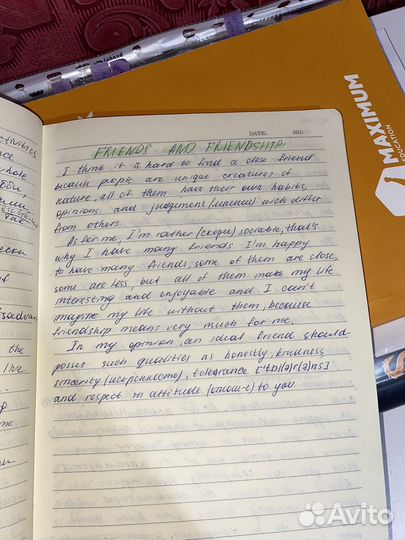 ctivities
ce
hole
DATE: NO:
FRIENDS AND FRIENDSHIP
I think it is hard to find a close friend
because people are unique creatures of
nature, all of them have their own habits,
opinions and judgement (мнение) wich differ
from others.
As for me, I'm rather (скорее) sociable, that's
why I have many friends I'm happy
to have many friends, some of them are close,
some are less, but all of them make my life
interesting and enjoyable and I can't
imagine my life without them, because
friendship means very much for me.
In my opinion, an ideal friend should
posses such qualities as honestly, kindness,
sincerity (искренность), tolerance
and respect in attitude to you
the
live
MAXIMUM
EDUCATION
Avito